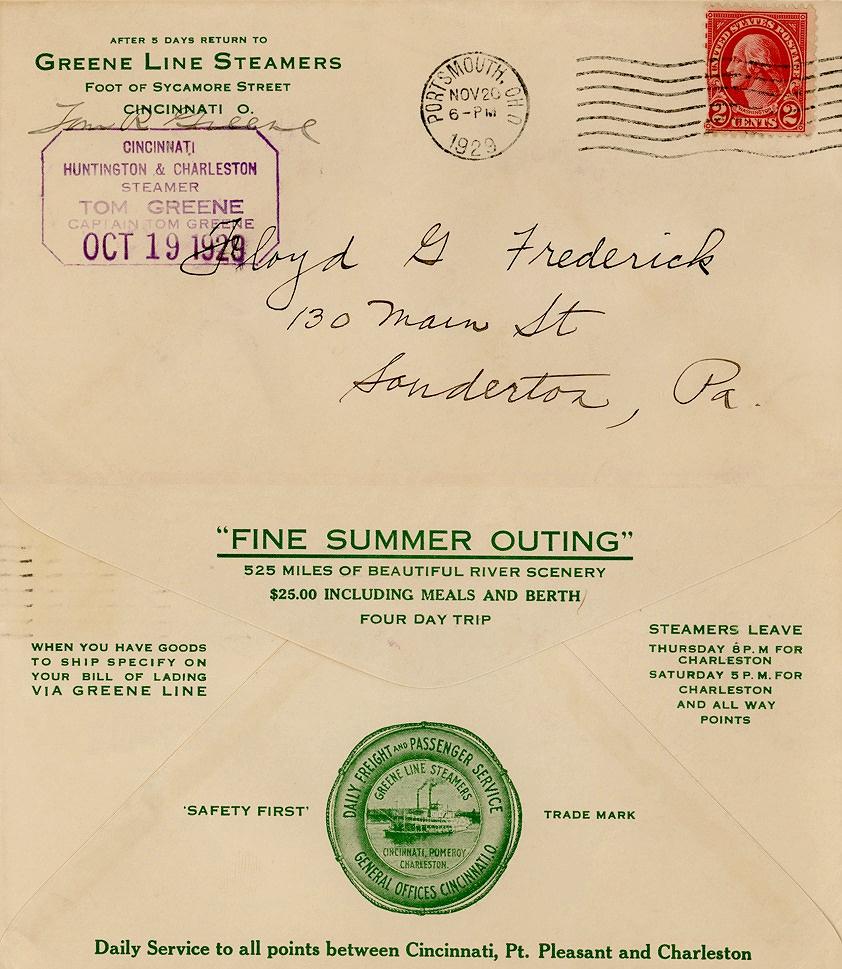 AFTER 5 DAYS RETURN TO
GREENE LINE STEAMERS
FOOT OF SYCAMORE STREET
CINCINNATI O.
Tom R Greene
CINCINNATI
HUNTINGTON & CHARLESTON
STEAMER
TOM GREENE
CAPTAIN TOM GREENE
OCT 19 1929
PORTSMOUTH, OHIO
NOV 20
6-PM
1929
UNITED STATES POSTAGE
WASHINGTON
2 CENTS 2
Floyd G Frederick
130 Main St
Souderton, Pa.
"FINE SUMMER OUTING"
525 MILES OF BEAUTIFUL RIVER SCENERY
$25.00 INCLUDING MEALS AND BERTH
FOUR DAY TRIP
WHEN YOU HAVE GOODS
TO SHIP SPECIFY ON
YOUR BILL OF LADING
VIA GREENE LINE
STEAMERS LEAVE
THURSDAY 8 P.M FOR
CHARLESTON
SATURDAY 5 P.M. FOR
CHARLESTON
AND ALL WAY
POINTS
'SAFETY FIRST'
DAILY FREIGHT AND PASSENGER SERVICE
GREENE LINE STEAMERS
CINCINNATI, POMEROY
CHARLESTON.
GENERAL OFFICES CINCINNATI.O.
TRADE MARK
Daily Service to all points between Cincinnati, Pt. Pleasant and Charleston